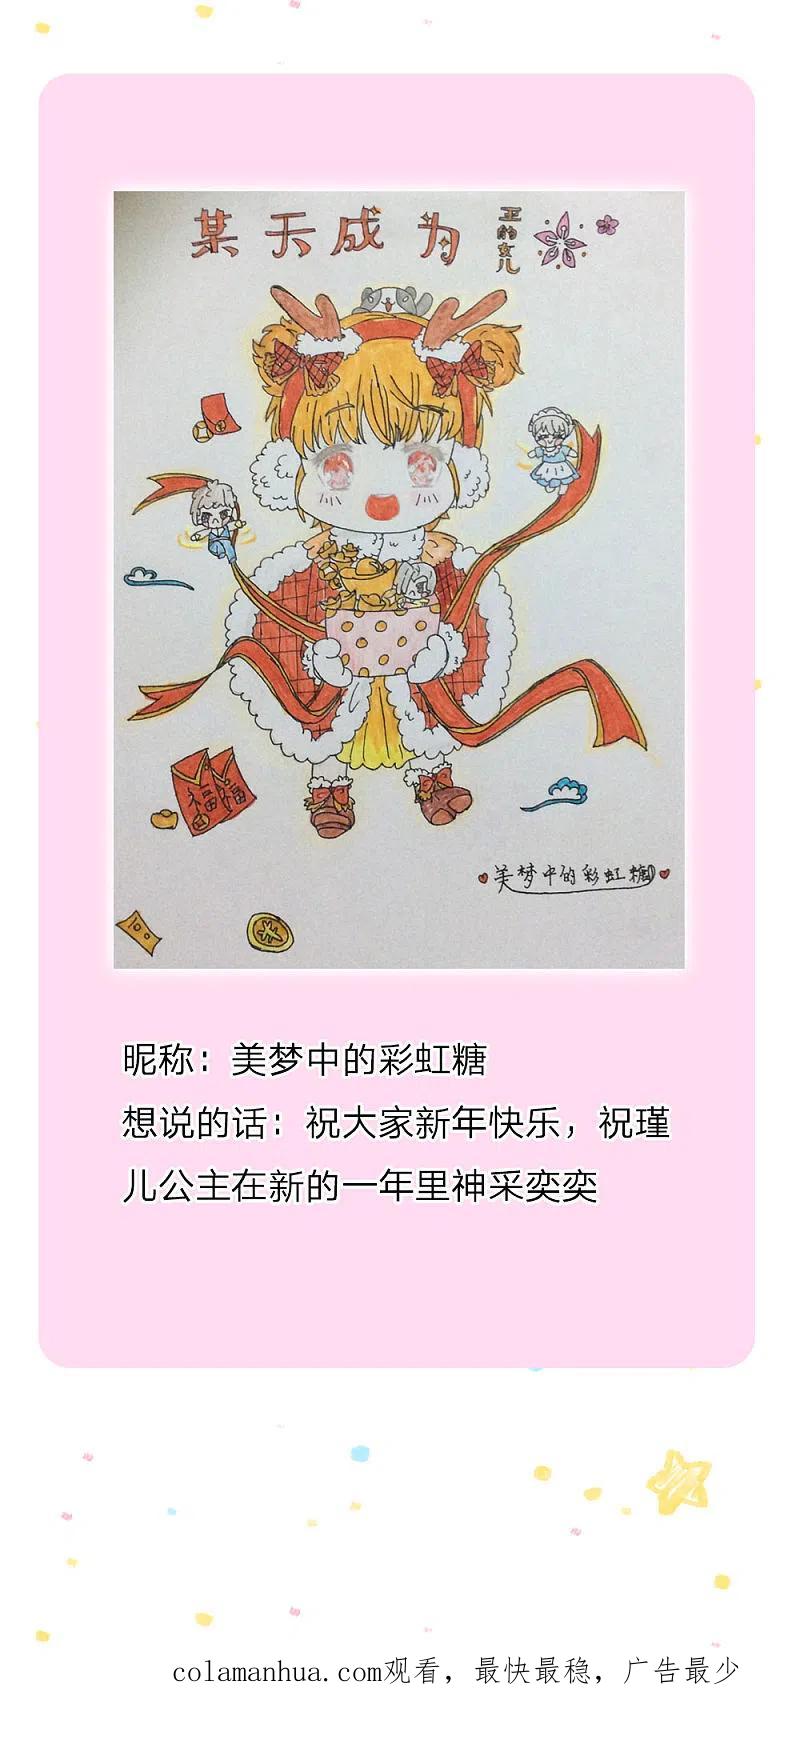 某天成为
王的女儿
福福
100
美梦中的彩虹糖
昵称：美梦中的彩虹糖
想说的话：祝大家新年快乐，祝瑾
儿公主在新的一年里神采奕奕
colamanhua.com观看，最快最稳，广告最少